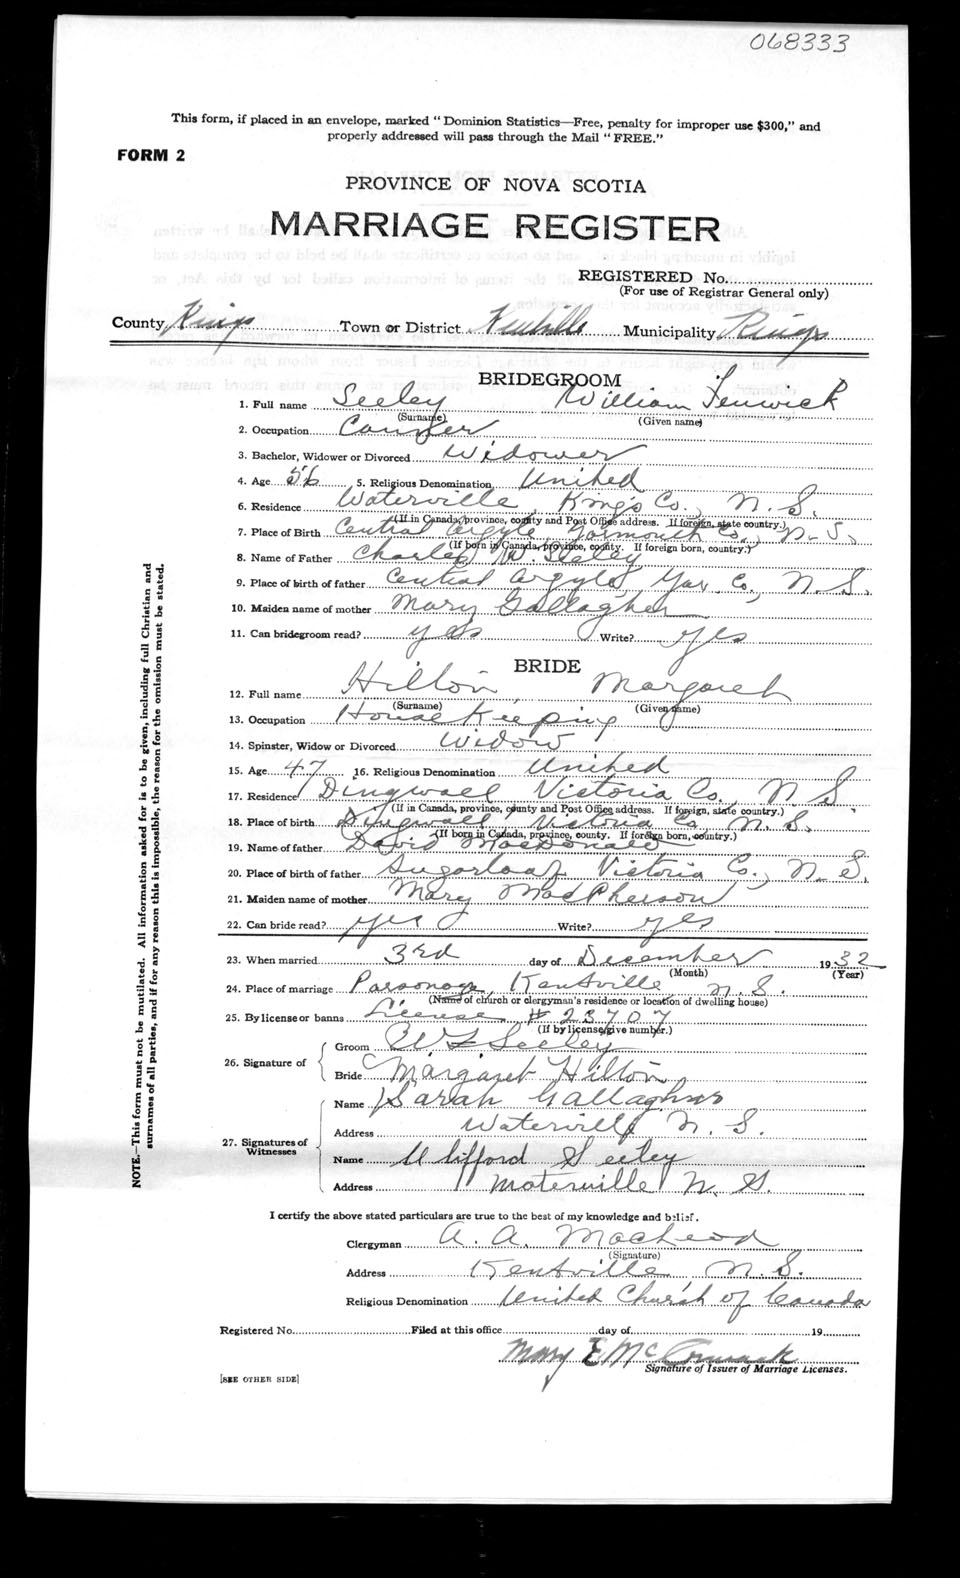 068333
This form, if placed in an envelope, marked " Dominion Statistics—Free, penalty for improper use $300," and
properly addressed will pass through the Mail " FREE."
FORM 2
PROVINCE OF NOVA SCOTIA
MARRIAGE REGISTER
REGISTERED No.
(For use of Registrar General only)
County Kings Town or District Kentville Municipality Kings
BRIDEGROOM
1. Full name Seeley William Fenwick
(Surname) (Given name)
2. Occupation
3. Bachelor, Widower or Divorced Widower
4. Age 56 5. Religious Denomination United
6. Residence Waterville, Kings Co., N. S.
(If in Canada, province, county and Post Office address. If foreign, state country.)
7. Place of Birth Central Argyle Yarmouth Co., N. S.
(If born in Canada, province, county. If foreign born, country.)
8. Name of Father Charles W. Seeley
9. Place of birth of father Central Argyle, Yar. Co., N. S.
10. Maiden name of mother Mary Gallagher
11. Can bridegroom read? yes Write? yes
BRIDE
12. Full name Hilton, Margaret
(Surname) (Given name)
13. Occupation House Keeping
14. Spinster, Widow or Divorced Widow
15. Age 47 16. Religious Denomination United
17. Residence Dingwall Victoria Co., N. S.
(If in Canada, province, county and Post Office address. If foreign, state country.)
18. Place of birth Dingwall, Victoria Co, N. S.
(If born in Canada, province, county. If foreign born, country.)
19. Name of father David MacDonald
20. Place of birth of father Sugarloaf Victoria Co., N. S.
21. Maiden name of mother Mary MacPherson
22. Can bride read? yes Write? yes
23. When married 3rd day of December 1932
(Month) (Year)
24. Place of marriage Parsonage, Kentville N. S.
(Name of church or clergyman's residence or location of dwelling house)
25. By license or banns License # 23707
(If by license, give number.)
26. Signature of Groom W F Seeley
Bride Margaret Hilton
27. Signatures of Witnesses Name Sarah Gallagher
Address Waterville N. S.
Name Clifford Seeley
Address Waterville N. S.
I certify the above stated particulars are true to the best of my knowledge and belief.
Clergyman A. A. MacLeod
(Signature)
Address Kentville N. S.
Religious Denomination United Church of Canada
Registered No. Filed at this office day of 19
Mary E McCormick
Signature of Issuer of Marriage Licenses.
[SEE OTHER SIDE]
NOTE.—This form must not be mutilated. All information asked for is to be given, including full Christian and
surnames of all parties, and if for any reason this is impossible, the reason for the omission must be stated.